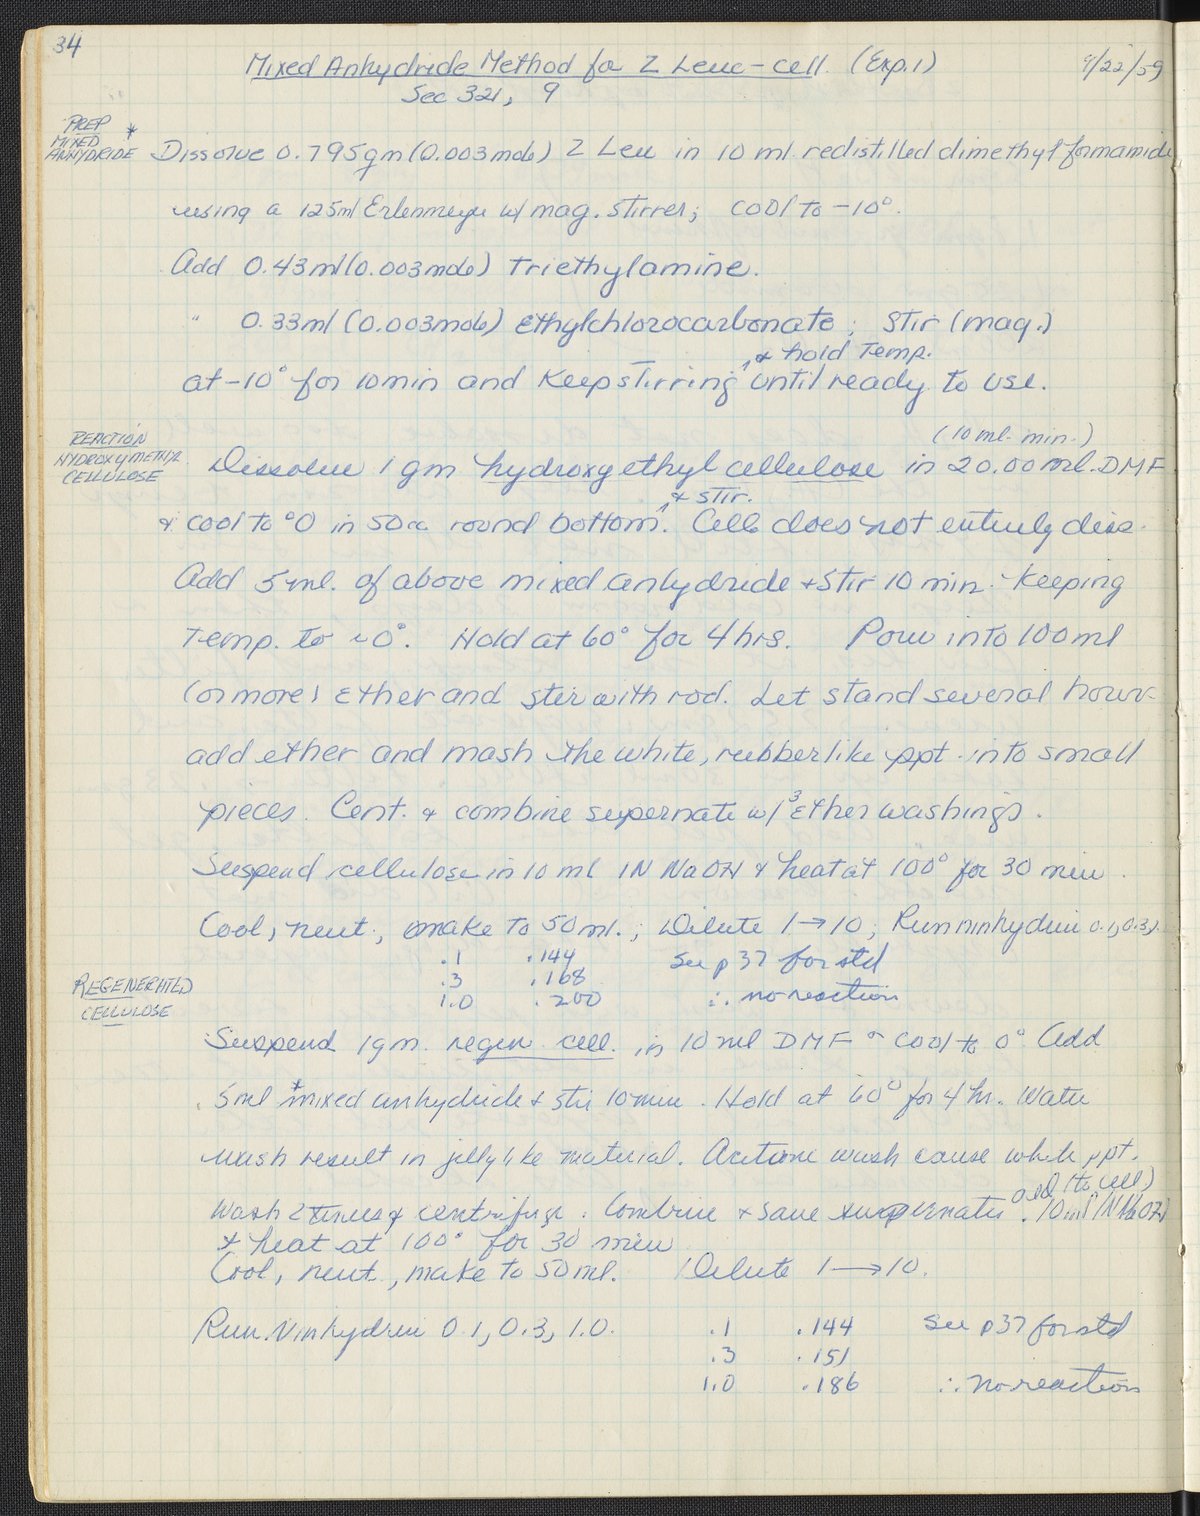 34
Mixed Anhydride Method for Z Leuc-cell. (Exp. 1) 9/22/59
Sec 321, 9
PREP
MIXED *
ANHYDRIDE
Dissolve 0.795gm (0.003mole) Z Leu in 10 ml redistilled dimethyl formamide
using a 125ml Erlenmeyer w/ mag. stirrer; cool to -10°.
Add 0.43ml (0.003mole) Triethylamine.
" 0.33ml (0.003mole) Ethylchlorocarbonate; stir (mag.)
& hold Temp.
at -10° for 10min and keep stirring ^ until ready to use.
REACTION
HYDROXYMETHYL
CELLULOSE
(10 ml. min.)
Dissolve 1 gm hydroxyethyl cellulose in 20.00 ml. DMF
& stir.
& cool to °0 in 50cc round bottom ^. Cell does not entirely diss.
Add 5 ml. of above mixed anhydride & stir 10 min. keeping
Temp. to ~0°. Hold at 60° for 4 hrs. Pour into 100 ml
(or more) Ether and stir with rod. Let stand several hours
add ether and mash the white, rubberlike ppt. into small
pieces. Cent. & combine supernate w/ 3 Ether washings.
Suspend cellulose in 10 ml 1N NaOH & heat at 100° for 30 min.
Cool, neut., make to 50 ml.; Dilute 1→10; Run ninhydrin 0.1, 0.3,
.1 .144 See p 37 for std
.3 .168
1.0 .200 ∴ no reaction
REGENERATED
CELLULOSE
Suspend 1 gm. regen cell. in 10 ml DMF & cool to 0°. Add
5 ml *mixed anhydride & stir 10 min. Hold at 60° for 4 hr. Water
wash result in jellylike material. Acetone wash cause white ppt.
add (to cell)
Wash 2 times & centrifuge. Combine & save supernates. 10 ml 1N NaOH
& heat at 100° for 30 min
Cool, neut., make to 50 ml. Dilute 1→10.
Run Ninhydrin 0.1, 0.3, 1.0. .1 .144 See p 37 for std
.3 .151
1.0 .186 ∴ no reaction